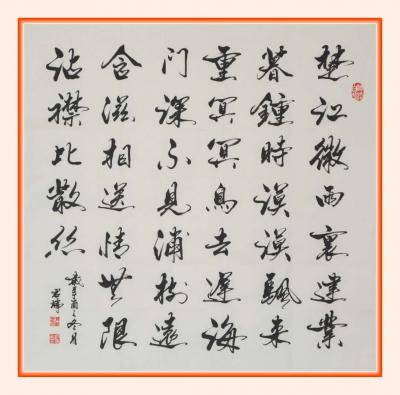 楚江微雨裏建業
暮鍾時漠漠颿来
重冥冥鳥去遲海
门深不見浦樹遠
含滋相送情無限
沾襟比散絲
歲酉之冬月